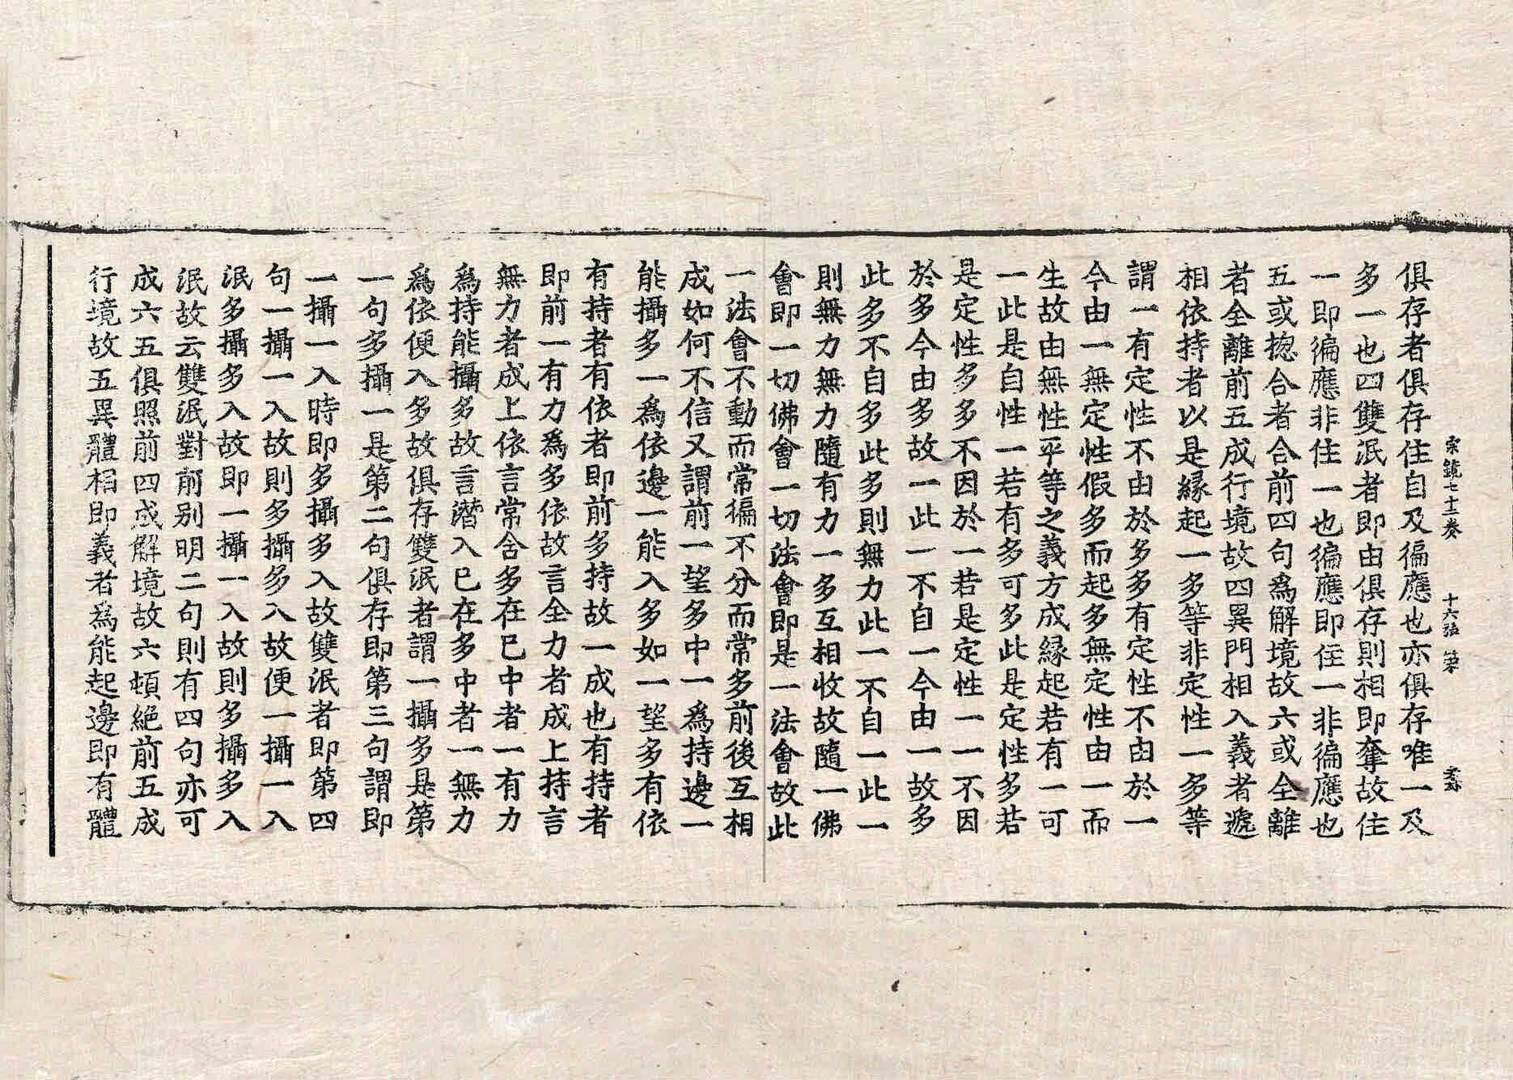 俱存者俱存住自及徧應也亦俱存唯一及
多一也四雙泯者即由俱存則相即奪故住
一即徧應非住一也徧應即住一非徧應也
五或揔合者合前四句爲解境故六或全離
者全離前五成行境故四異門相入義者遞
相依持者以是縁起一多等非定性一多等
謂一有定性不由於多多有定性不由於一
今由一無定性假多而起多無定性由一而
生故由無性平等之義方成縁起若有一可
一此是自性一若有多可多此是定性多若
是定性多多不因於一若是定性一一不因
於多今由多故一此一不自一今由一故多
此多不自多此多則無力此一不自一此一
則無力無力隨有力一多互相收故隨一佛
會即一切佛會一切法會即是一法會故此
一法會不動而常徧不分而常多前後互相
成如何不信又謂前一望多中一爲持邊一
能攝多一爲依邊一能入多如一望多有依
有持者有依者即前多持故一成也有持者
即前一有力為多依故言全力者成上持言
無力者成上依言常含多在已中者一有力
爲持能攝多故言潛入已在多中者一無力
爲依便入多故俱存雙泯者謂一攝多是第
一句多攝一是第二句俱存即第三句謂即
一攝一入時即多攝多入故雙泯者即第四
句一攝一入故則多攝多入故便一攝一入
泯多攝多入故即一攝一入故則多攝多入
泯故云雙泯對前别明二句則有四句亦可
成六五俱照前四成解境故六頓絶前五成
行境故五異體相即義者爲能起邊即有體